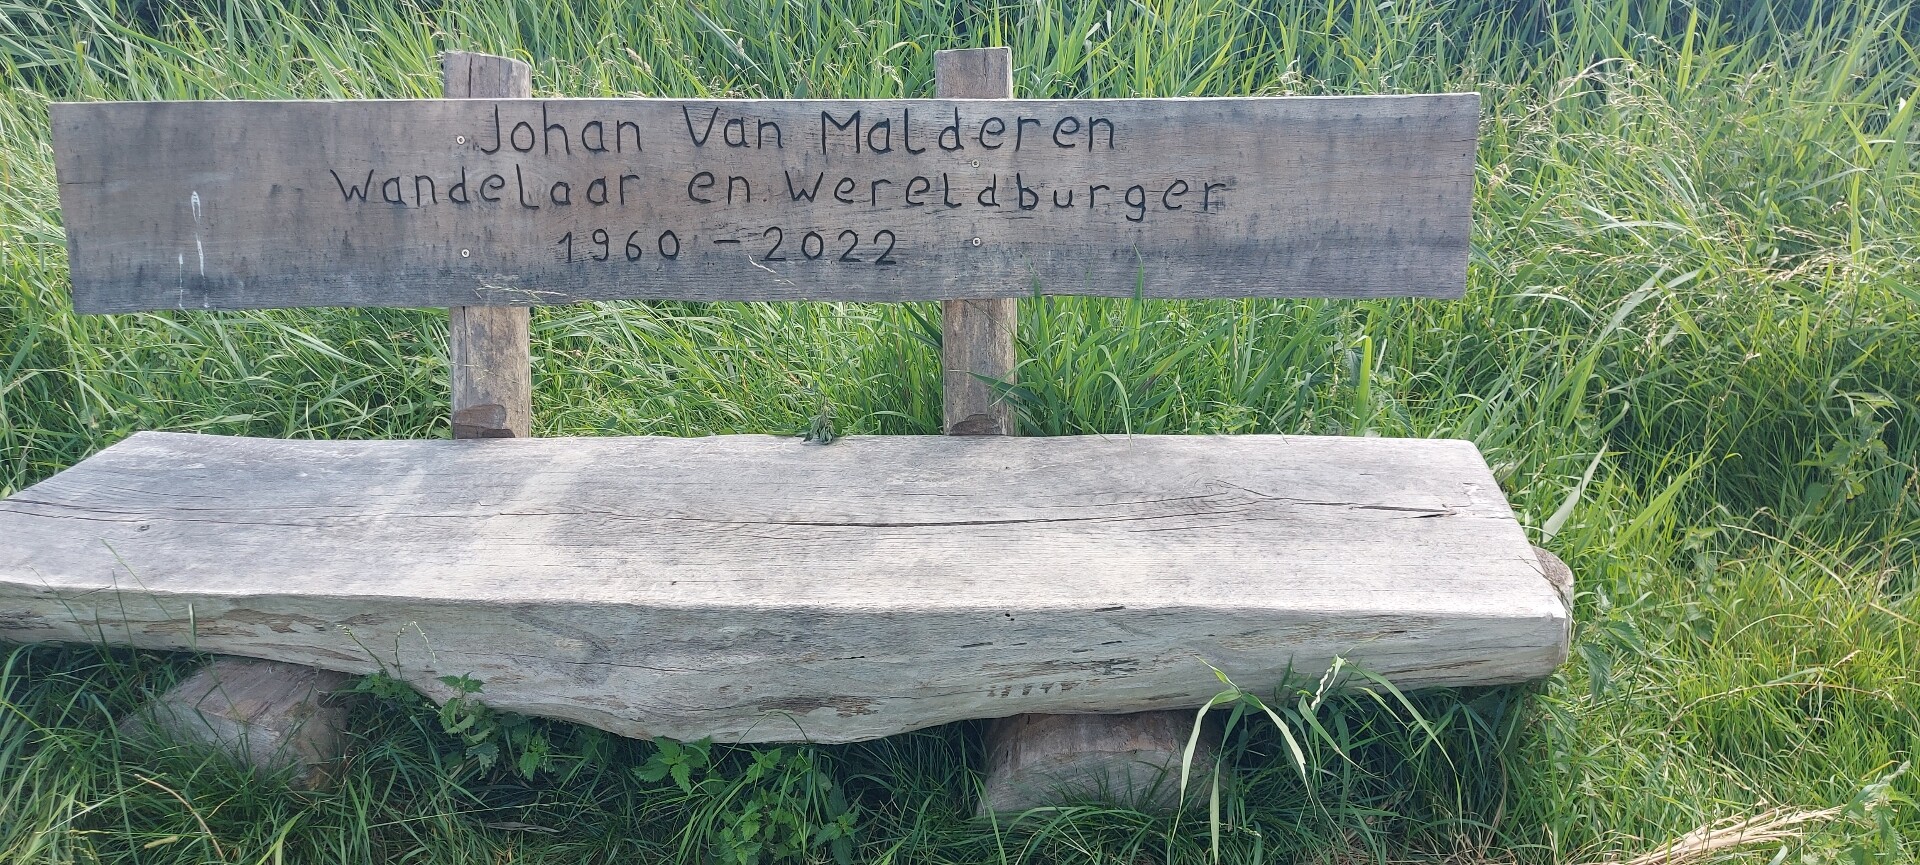 Johan Van Malderen
Wandelaar en Wereldburger
1960 - 2022